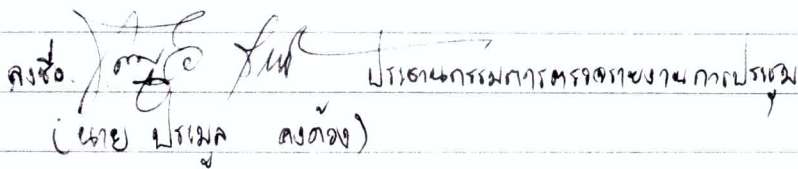 ลงชื่อ. ประธานกรรมการตรวจรายงานการประชุม
(นาย ประมูล คงด้วง)